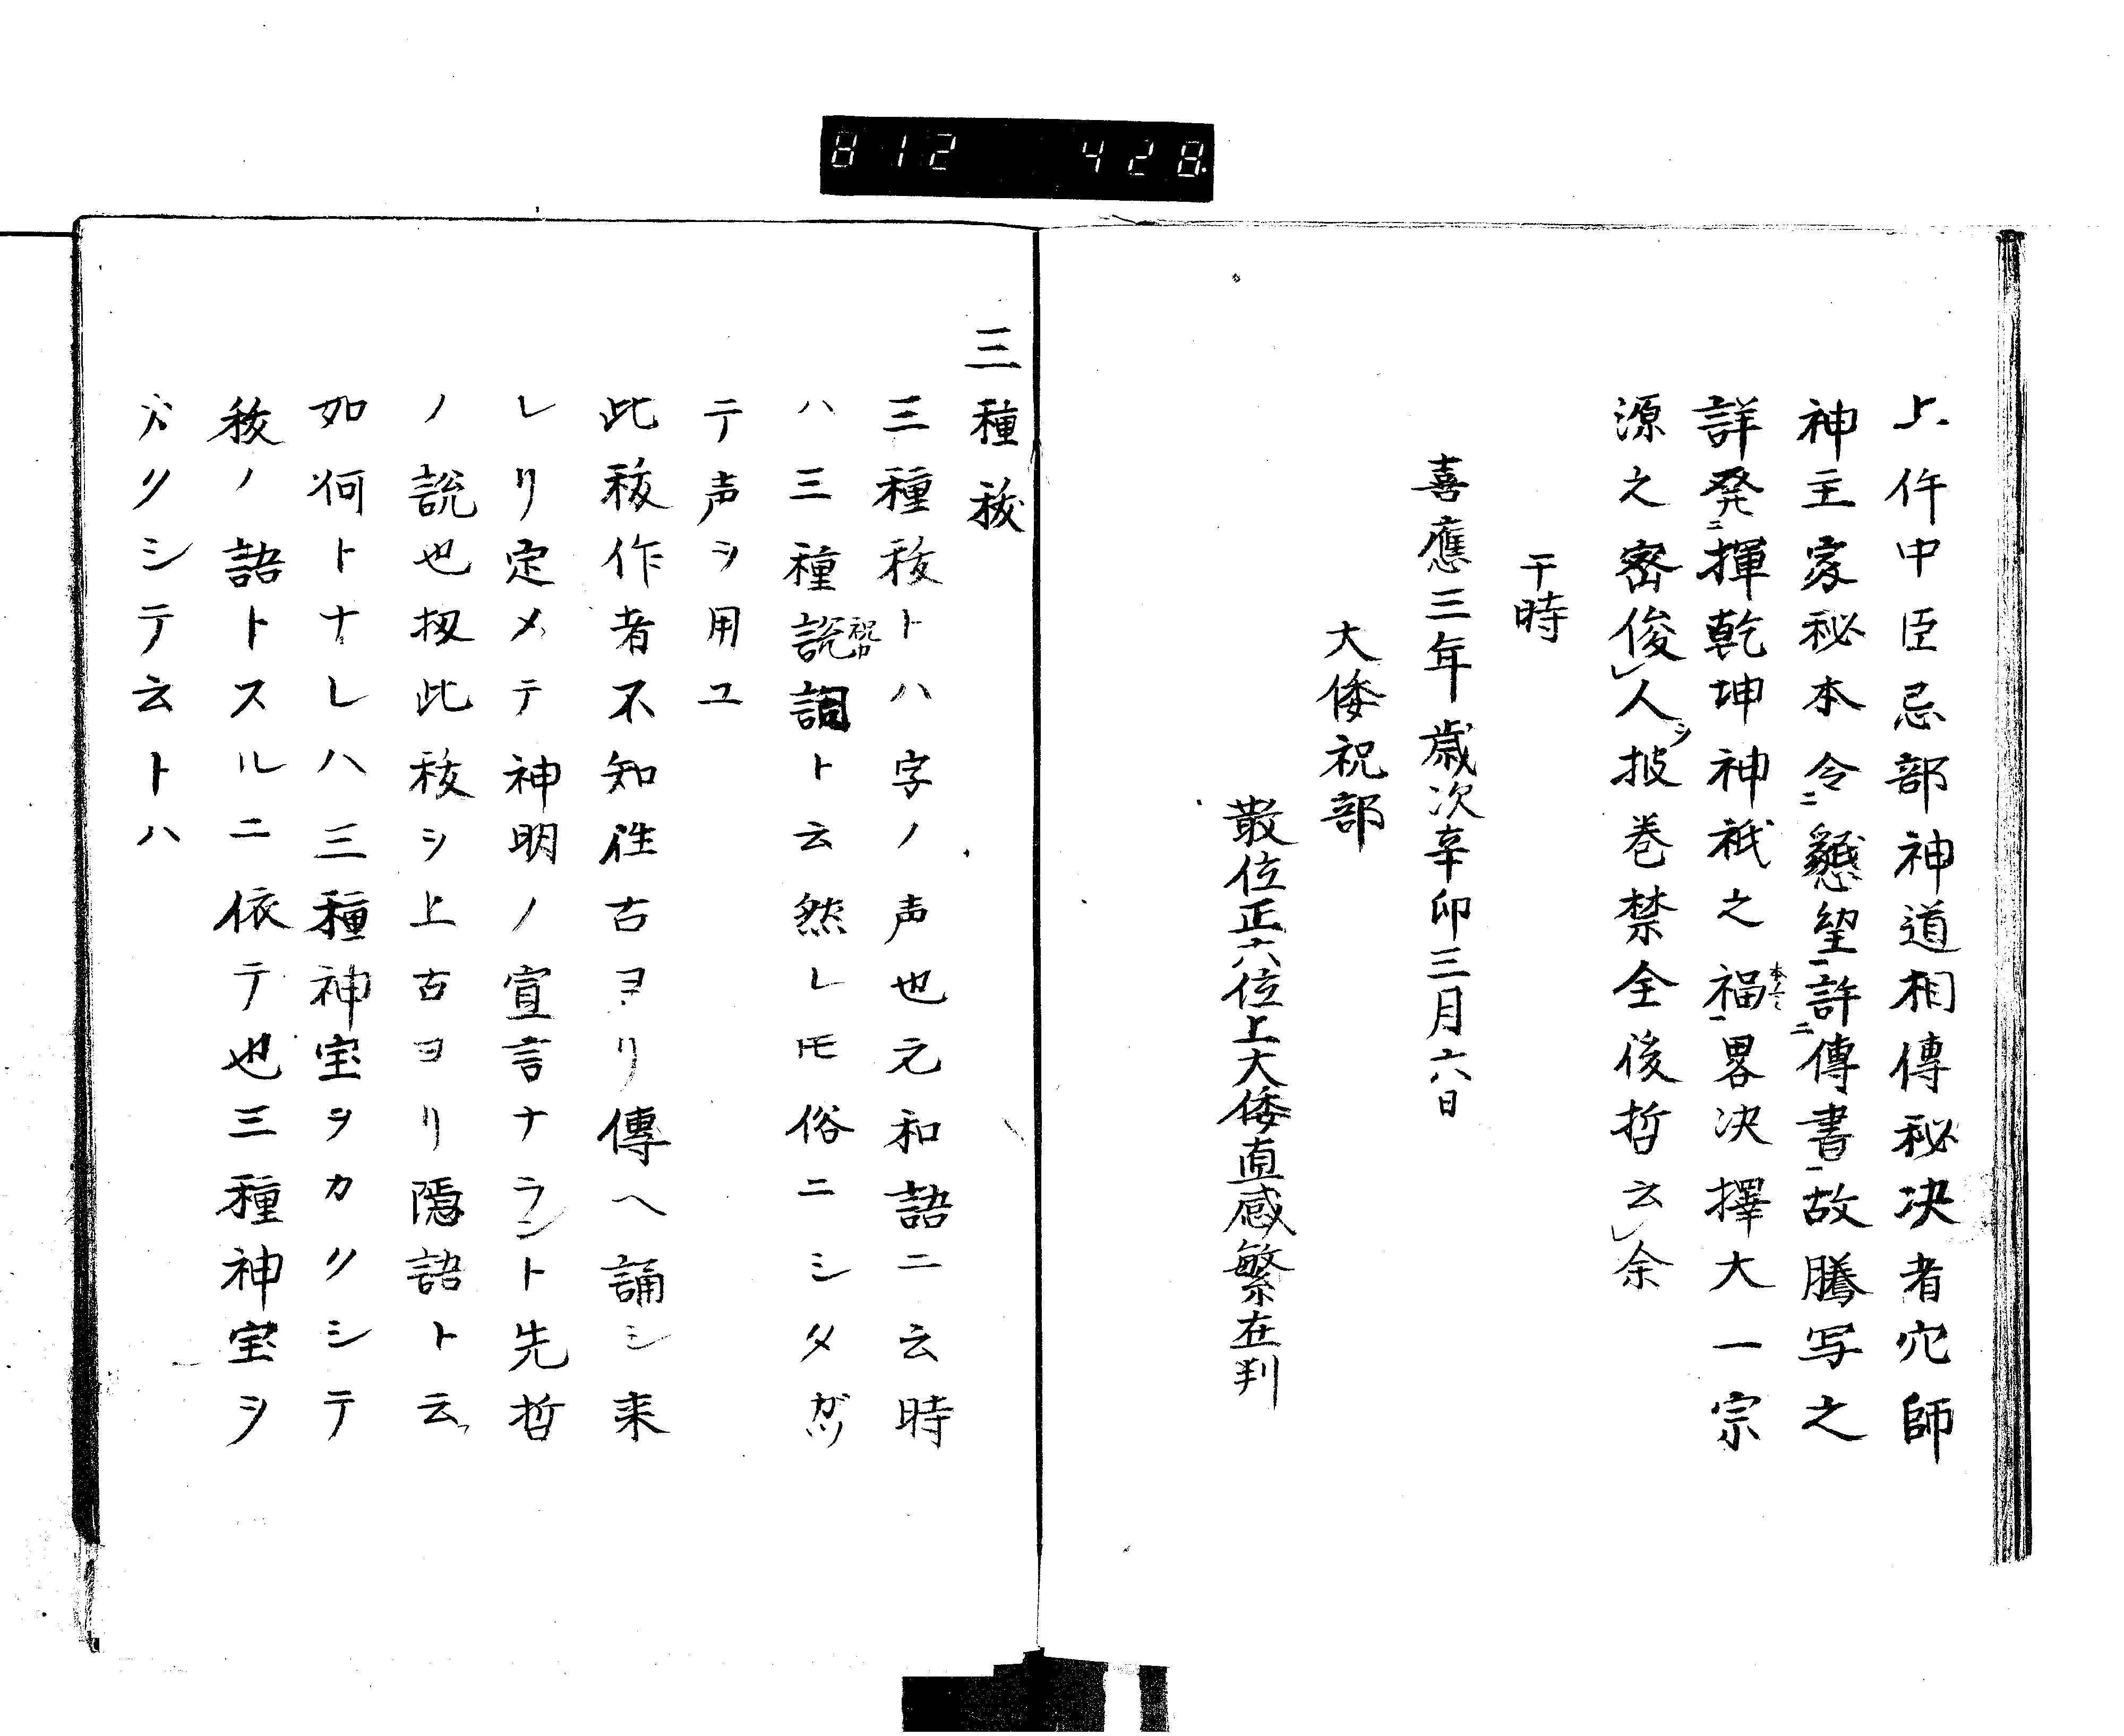 812 428
上件中臣忌部神道相傳秘决者穴師
神主家秘本令二懇望一許二傳書一故騰写之
詳発二揮乾坤神祇之福一畧决擇大一宗
源之密俊レ人シ披巻禁全後哲云レ余
干時
喜應三年歳次辛卯三月六日
大倭祝部
散位正六位上大倭直盛繁在判
三種秡
三種秡トハ字ノ声也元和語ニ云時
ハ三種説祝カ詞ト云然レモ俗ニシタガツ
テ声ヲ用ユ
此秡作者不知往古ヨリ傳ヘ誦シ来
レリ定メテ神明ノ宣言ナラント先哲
ノ説也扨此秡ヲ上古ヨリ隠語ト云
如何トナレハ三種神宝ヲカクシテ
秡ノ語トスルニ依テ也三種神宝ヲ
クシテ云トハ